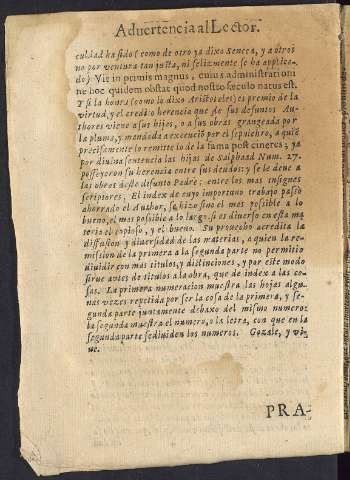 Aduertencia al Lector.
cultad ha sido (como de otro ya dixo Seneca, y a otros
no por ventura tan justa, ni felizmente se ha applica-
do) Vir in primis magnus, cuius administrationi
ne hoc quidem obstat quod nostro sæculo natus est.
Y si la honra (como lo dixo Aristoteles) es premio de la
virtud, y el credito herencia que de sus defuntos Au-
thores viene a sus hijos, o a sus obras grangeada por
la pluma, y mandada a execució por el sepulchro, a quié
precisamente lo remitte lo de la fama post cineres; ya
por diuina sentencia las hijas de Salphaad Num. 27.
posseyeron su herencia entre sus deudos: y se le deue a
las obras deste defunto Padre: entre los mas insignes
scriptores, El index de cuyo importuno trabajo passó
ahorrado el Author, se hizo sino el mas possible a lo
bueno, el mas possible a lo largo: si es diuerso en esta ma
teria el copioso, y el bueno. Su prouecho acredita la
diffusion y diuersidad de las materias, a quien la re-
mission de la primera a la segunda parte no permitio
diuidir con mas titulos, y distinciones, y por este modo
sirue antes de titulos a la obra, que de index a las co-
sas. La primera numeracion muestra las hojas algu-
nas vezes repetida por ser la cosa de la primera, y se-
gunda parte juntamente debaxo del mismo numero:
la segunda muestra el numero, o la letra, con que en la
segunda parte se diuiden los numeros. Gozale, y vi-
ue.
PRA-